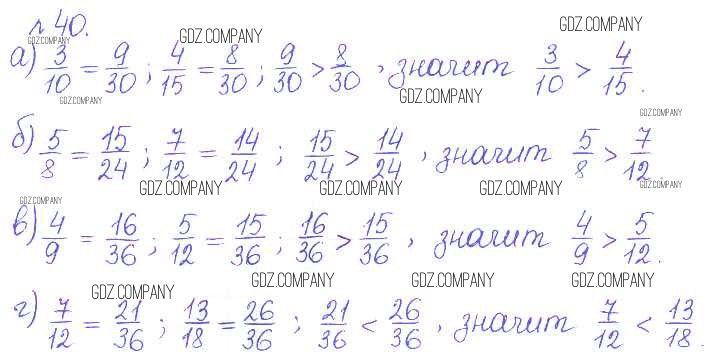 № 40.
GDZ.COMPANY GDZ.COMPANY GDZ.COMPANY
а) 3/10 = 9/30 ; 4/15 = 8/30 ; 9/30 > 8/30 , значит 3/10 > 4/15 .
GDZ.COMPANY GDZ.COMPANY
GDZ.COMPANY
б) 5/8 = 15/24 ; 7/12 = 14/24 ; 15/24 > 14/24 , значит 5/8 > 7/12 .
GDZ.COMPANY GDZ.COMPANY GDZ.COMPANY GDZ.COMPANY
GDZ.COMPANY
в) 4/9 = 16/36 ; 5/12 = 15/36 ; 16/36 > 15/36 , значит 4/9 > 5/12 .
GDZ.COMPANY GDZ.COMPANY GDZ.COMPANY GDZ.COMPANY
г) 7/12 = 21/36 ; 13/18 = 26/36 ; 21/36 < 26/36 , значит 7/12 < 13/18 .